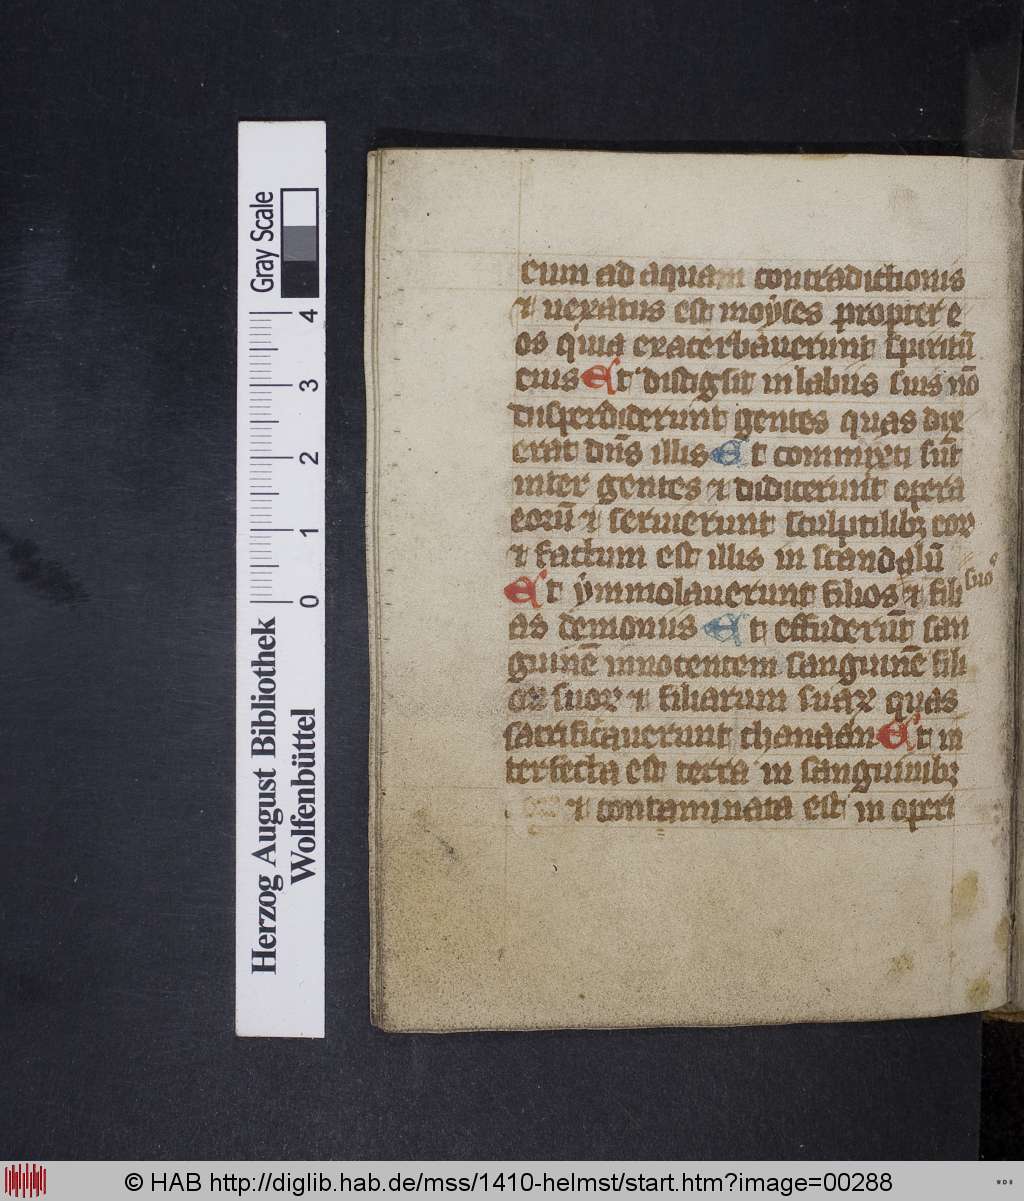 eum ad aquam contradictionis
⁊ uexatus est moyses propter e
os quia exacerbauerunt spiritū
eius Et distīgsit in labiis suis nō
disperdiderunt gentes quas dix
erat dn̄s illis Et commixti sūt
inter gentes ⁊ didicerunt opera
eorū ⁊ seruierunt sculptilibꝫ eoꝝ
⁊ factum est illis in scandalū
Et ymmolauerunt filios ⁊ fili
suos
as demoniis Et effuderūt san
guinē innocentem sanguinē fili
oꝝ suoꝝ ⁊ filiarum suaꝝ quas
sacrificauerunt chanaan Et in
terfecta est terra in sanguinibꝫ
⁊ contaminata est in operi
Gray Scale
4
3
2
1
0
Herzog August Bibliothek
Wolfenbüttel
© HAB http://diglib.hab.de/mss/1410-helmst/start.htm?image=00288